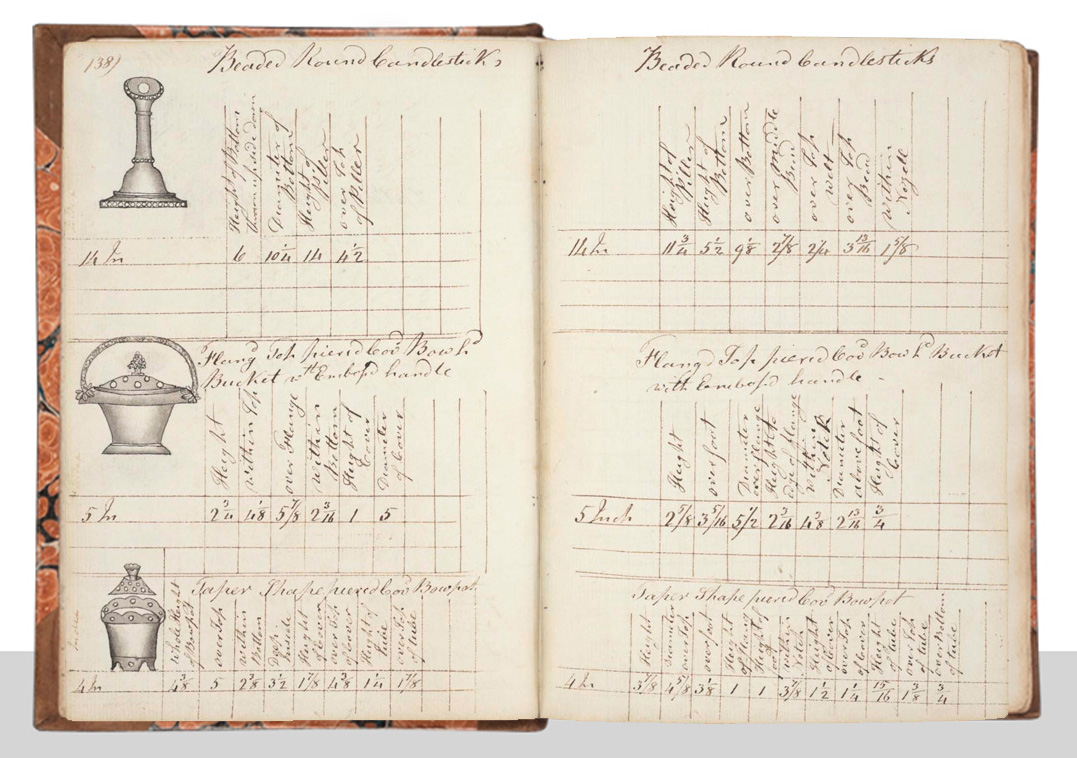 138)
Beaded Round Candlesticks
Height of Bottom
thrown side down
Diameter of
Bottom
Height of
Piller
over Top
of Piller
14 In 6 10 1/4 14 4 1/2
Flang'd Top pierc'd Cov'd Bow h'd
Bucket wth Embos'd handle
Height
within Top
over Flange
within
Bottom
Height of
Cover
Diameter
of Cover
5 In 2 3/4 4 1/8 5 7/8 2 3/16 1 5
Taper Shape pierc'd Cov'd Bowpot
Whole Height
of Bowpot
over Top
within
Bottom
Deep
Inside
Height
of Cover
over Top
of Cover
Height of
tube
over Top
of tube
4 In 4 3/8 5 2 3/8 3 1/2 1 7/8 4 3/8 1 1/4 1 7/8
Beaded Round Candlesticks
Height of
Piller
Height of
Bottom
over Bottom
over Middle
Bead
over Top
welt
over Top
Bead
within
Nozell
14 In 11 3/4 5 1/2 9 1/8 2 7/8 2/4 3 13/16 1 5/8
Flang'd Top pierc'd Cov'd Bow h'd Bucket
with Embos'd handle
Height
over foot
Diameter
over flange
Height to
edge of flange
within
Notch
Diameter
above foot
Height of
Cover
5 Inch 2 5/8 3 5/16 5 1/2 2 3/16 4 3/8 2 13/16 3/4
Taper Shape pierc'd Cov'd Bowpot
Height
Diameter
over Top
over foot
Height
Height of
within
Notch
Height
of Cover
over Top
of Cover
Height
of tube
over Top
of tube
over Bottom
of tube
4 In 3 7/8 4 5/8 3 1/8 1 1 3 7/8 1 1/2 1 1/4 15/16 1 3/8 3/4